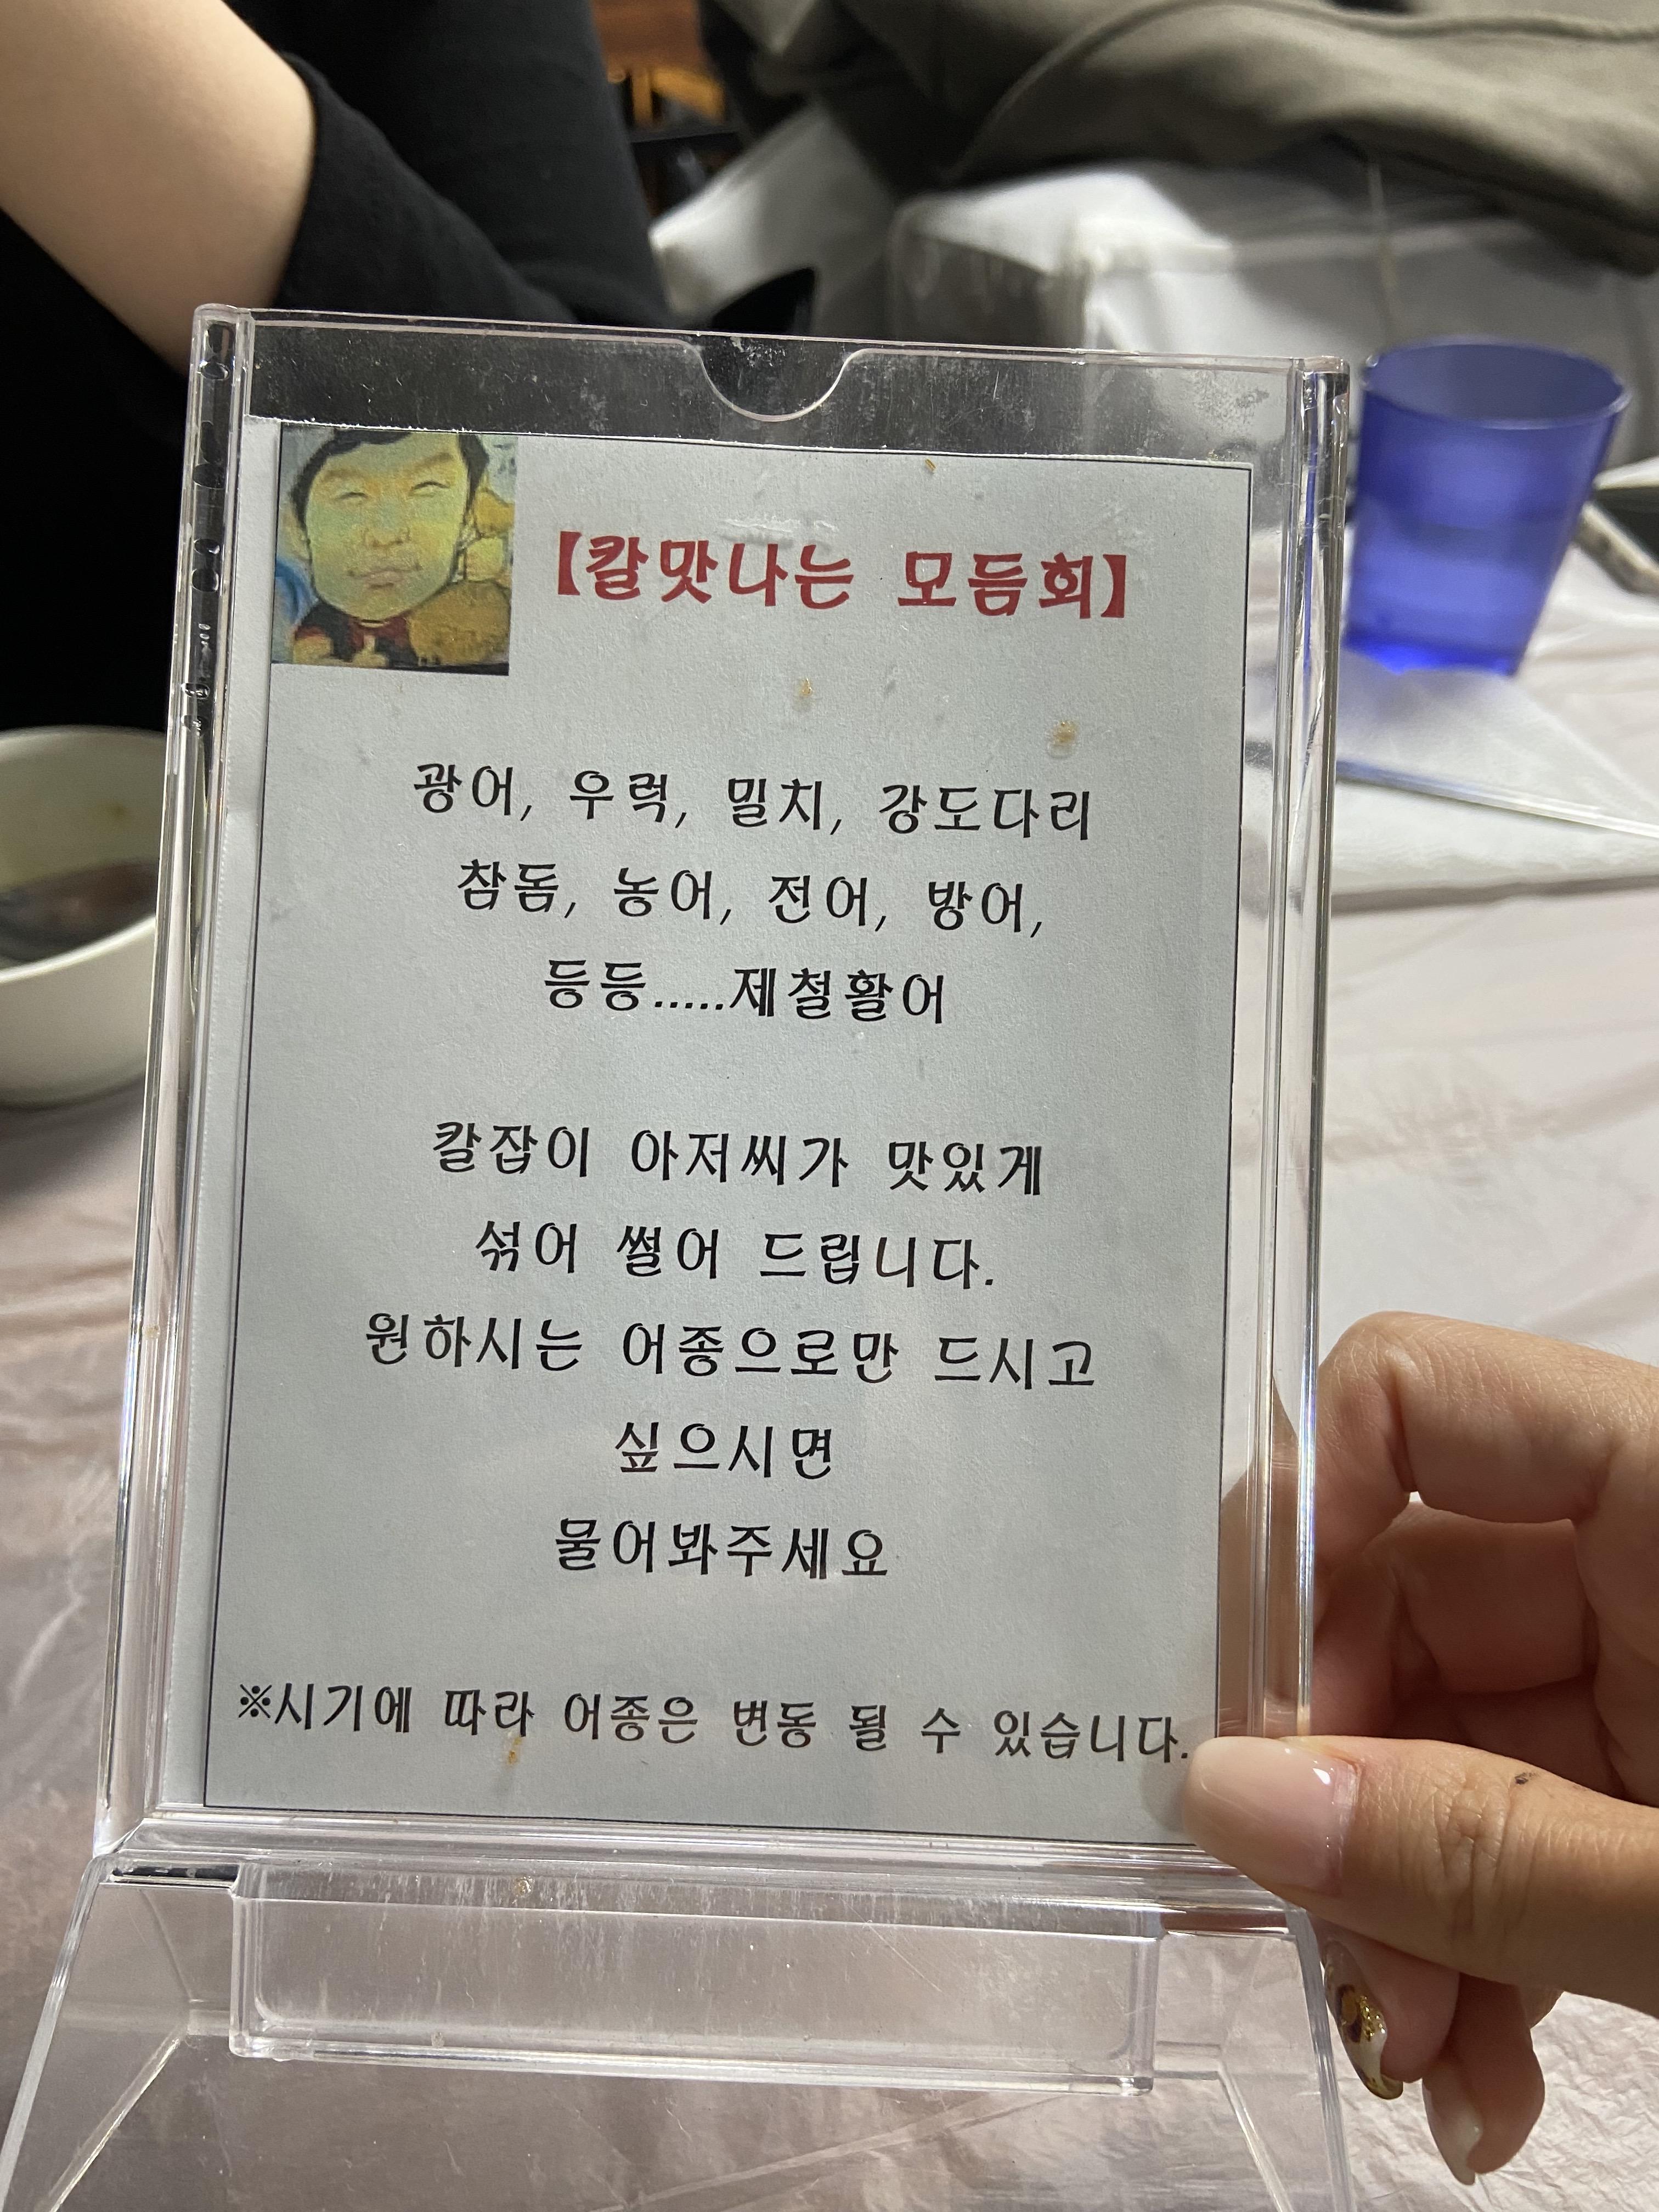 【칼맛나는 모듬회】
광어, 우럭, 밀치, 강도다리
참돔, 농어, 전어, 방어,
등등.....제철활어
칼잡이 아저씨가 맛있게
섞어 썰어 드립니다.
원하시는 어종으로만 드시고
싶으시면
물어봐주세요
※시기에 따라 어종은 변동 될 수 있습니다.